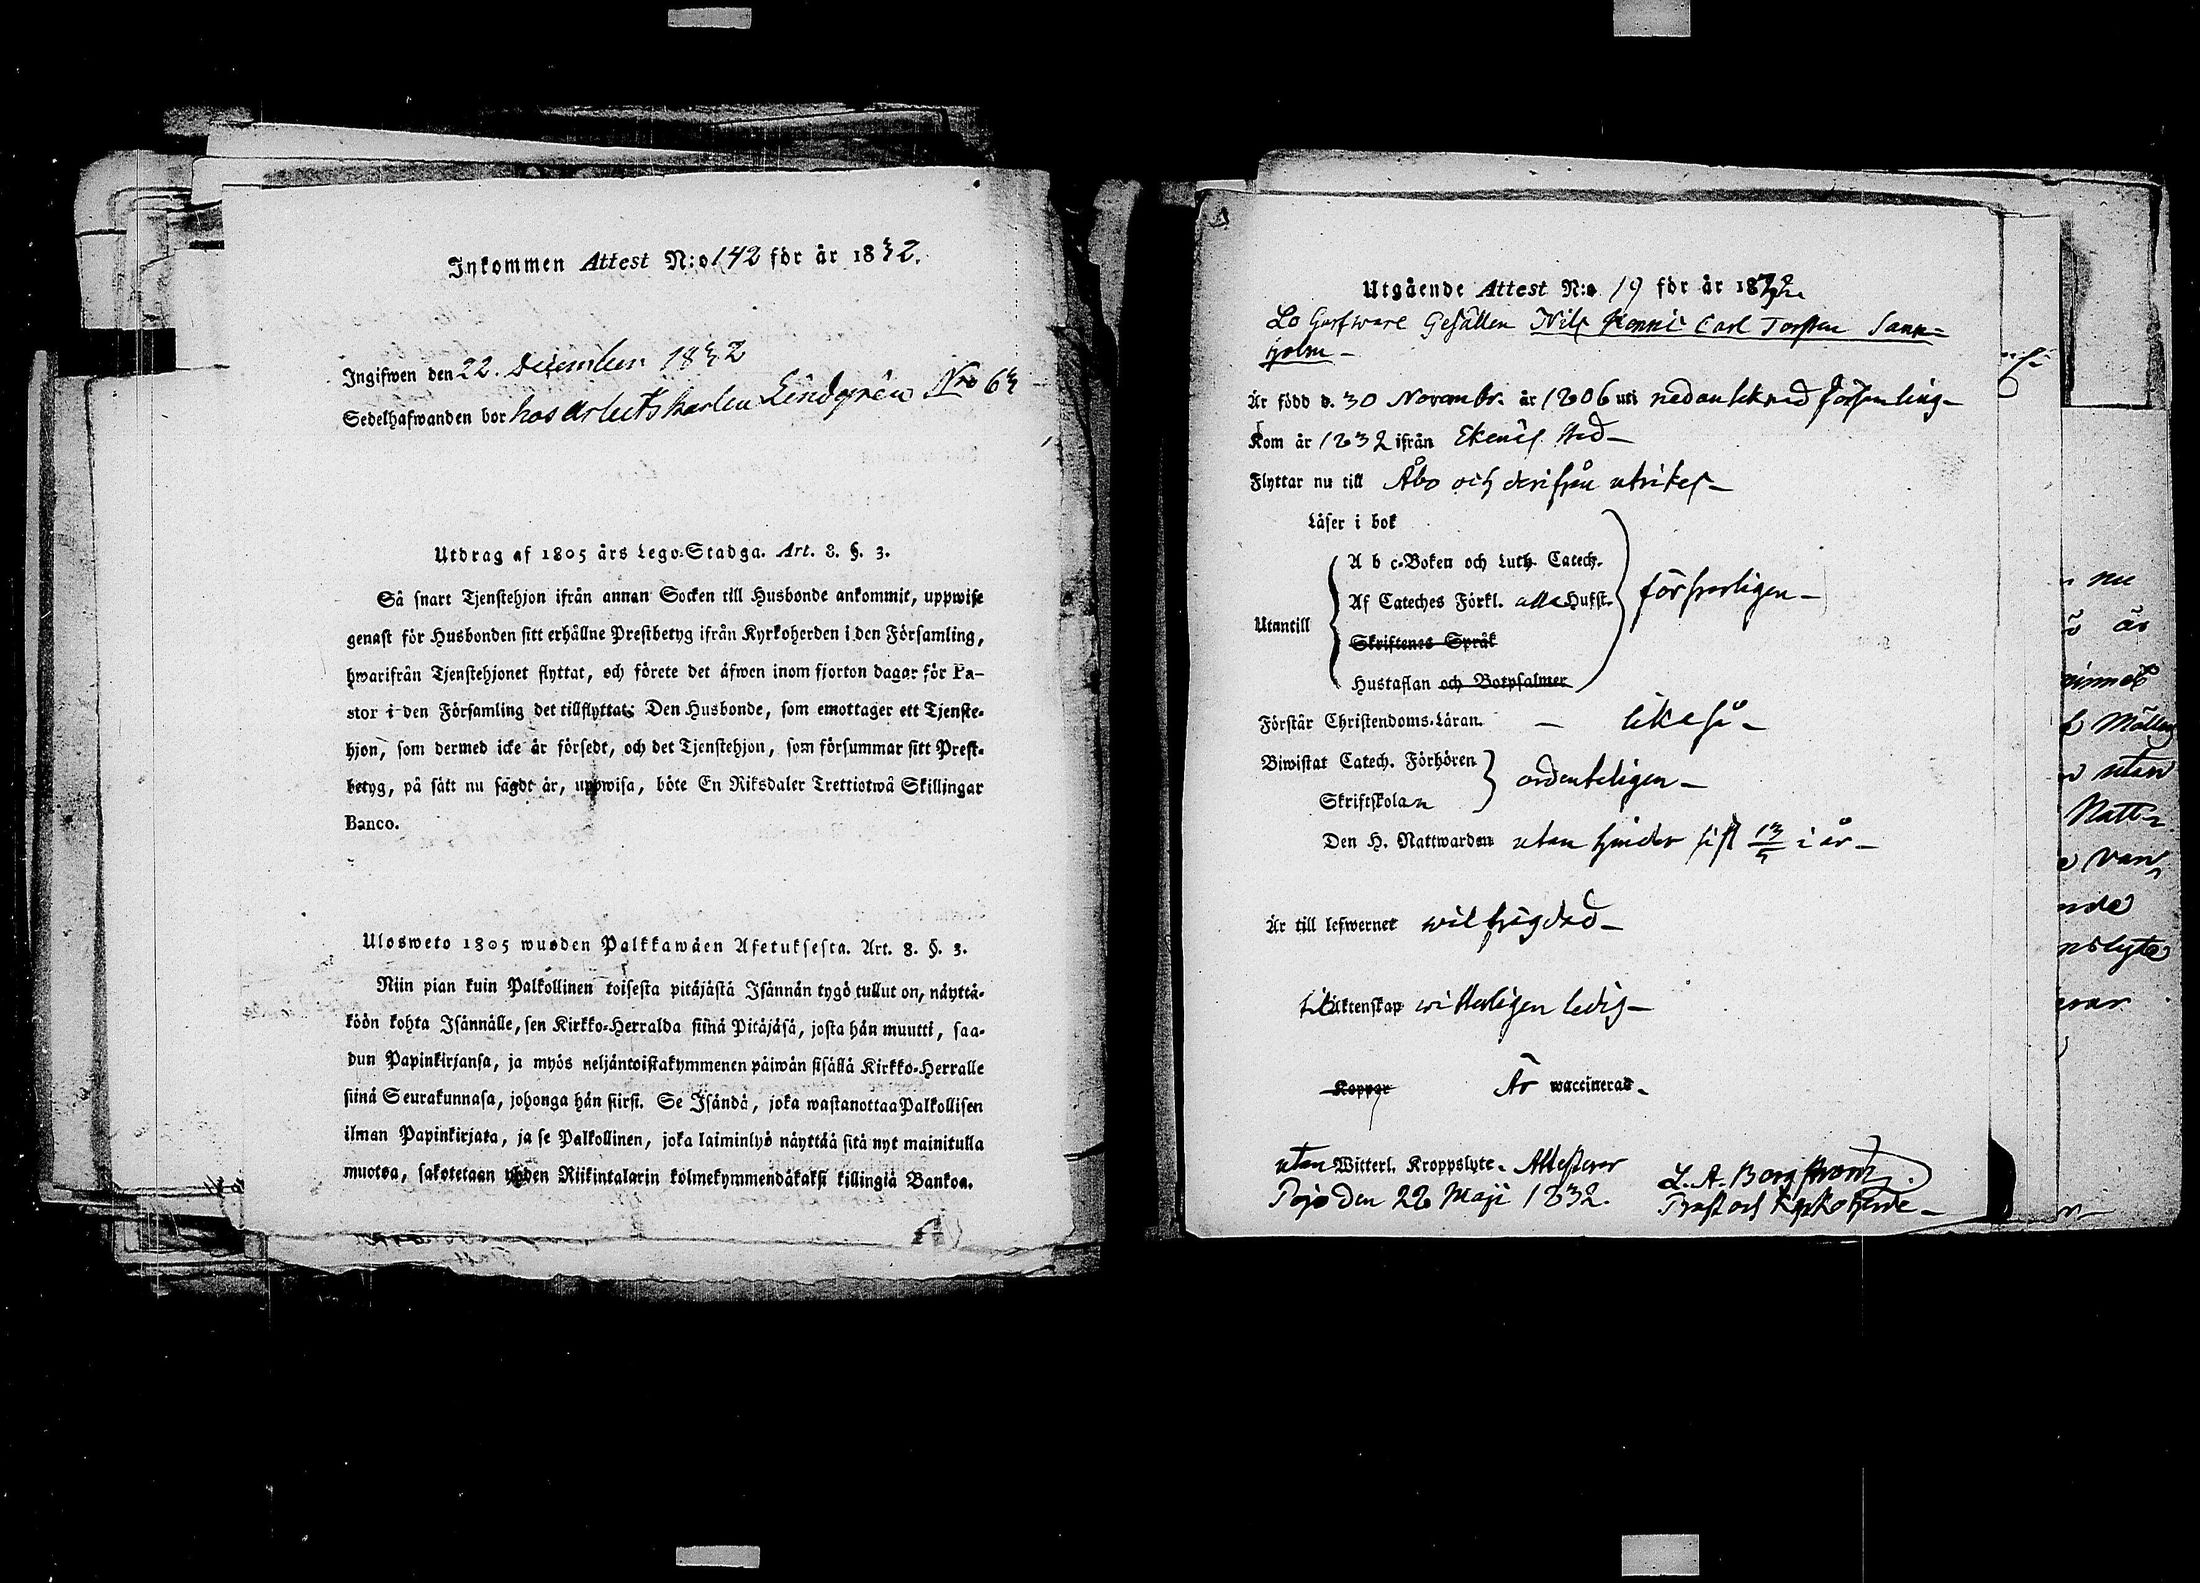 Inkommen Attest N:o 142 för år 1832.
Ingifwen den 22. December 1832
Sedelhafwanden bor hos arbetskarlen Lindgrén Nro 63
Utdrag af 1805 års Lego-Stadga. Art. 8. §. 3.
Så snart Tjenstehjon ifrån annan Socken till Husbonde ankommit, uppwise
genast för Husbonden sitt erhållne Prestbetyg ifrån Kyrkoherden i den Församling,
hwarifrån Tjenstehjonet flyttat, och förete det äfwen inom fjorton dagar för Pa-
stor i den Församling det tillflyttat. Den Husbonde, som emottager ett Tjenste-
hjon, som dermed icke är försedt, och det Tjenstehjon, som försummar sitt Prest-
betyg, på sätt nu sagdt är, uppwisa, böte En Riksdaler Trettiotwå Skillingar
Banco.
Ulosweto 1805 wuoden Palkkawäen Asetuksesta. Art. 8. §. 3.
Niin pian kuin Palkollinen toisesta pitäjästä Isännän tygö tullut on, näyttä-
köön kohta Isännälle, sen Kirkko-Herralda siinä Pitäjäsä, josta hän muutti, saa-
dun Papinkirjansa, ja myös neljäntoistakymmenen päiwän sisällä Kirkko-Herralle
siinä Seurakunnasa, johonga hän siirsi. Se Isändä, joka wastanottaa Palkollisen
ilman Papinkirjata, ja se Palkollinen, joka laiminlyö näyttää sitä nyt mainitulla
muotoa, sakotetaan yhden Riikintalarin kolmekymmendäkaksi killingiä Bankoa.
Utgående Attest N:o 19 för år 1832.
Lo Garfware Gesällen Nils Henric Carl Torsten Sann=
holm -
Är född d. 30 Novembr. år 1806 uti nedanteknad församling -
Kom år 1832 ifrån Ekenäs stad -
Flyttar nu till Åbo och derifrån utrikes -
Läser i bok
A b c-Boken och Luth. Catech.
Af Cateches Förkl. alla Hufst. försvarligen -
Utantill
Skriftenes Språk
Hustaflan och Botpsalmer
Förstår Christendoms-Läran. - likeså -
Biwistat Catech. Förhören ordenteligen -
Skriftskolan
Den H. Nattwarden utan hinder sist 13/5 i år -
Är till lefwernet wälfrägdad -
till äktenskap witterligen ledig -
Koppor Är waccinerad -
utan Witterl. Kroppslyte. Attesterar
Pojo den 28 Maji 1832. L. A. Borgström.
Prost och Kyrkoherde -
nu
är
utan
Natt=